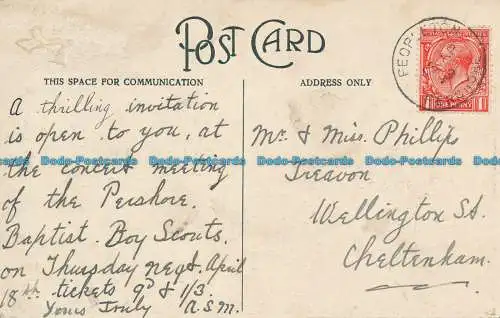 POST CARD
THIS SPACE FOR COMMUNICATION
ADDRESS ONLY
A thrilling invitation
is open to you, at
the concert meeting
of the Pershore
Baptist Boy Scouts.
on Thursday next April
18th tickets 9d & 1/3
Yours Truly A.S.M.
Mr & Miss. Phillips
Treavon
Wellington St.
Cheltenham.
ONE PENNY
Dodo-Postcards Dodo-Postcards Dodo-Postcards Dodo-Postcards Dodo-Postcards Dodo-Postcards